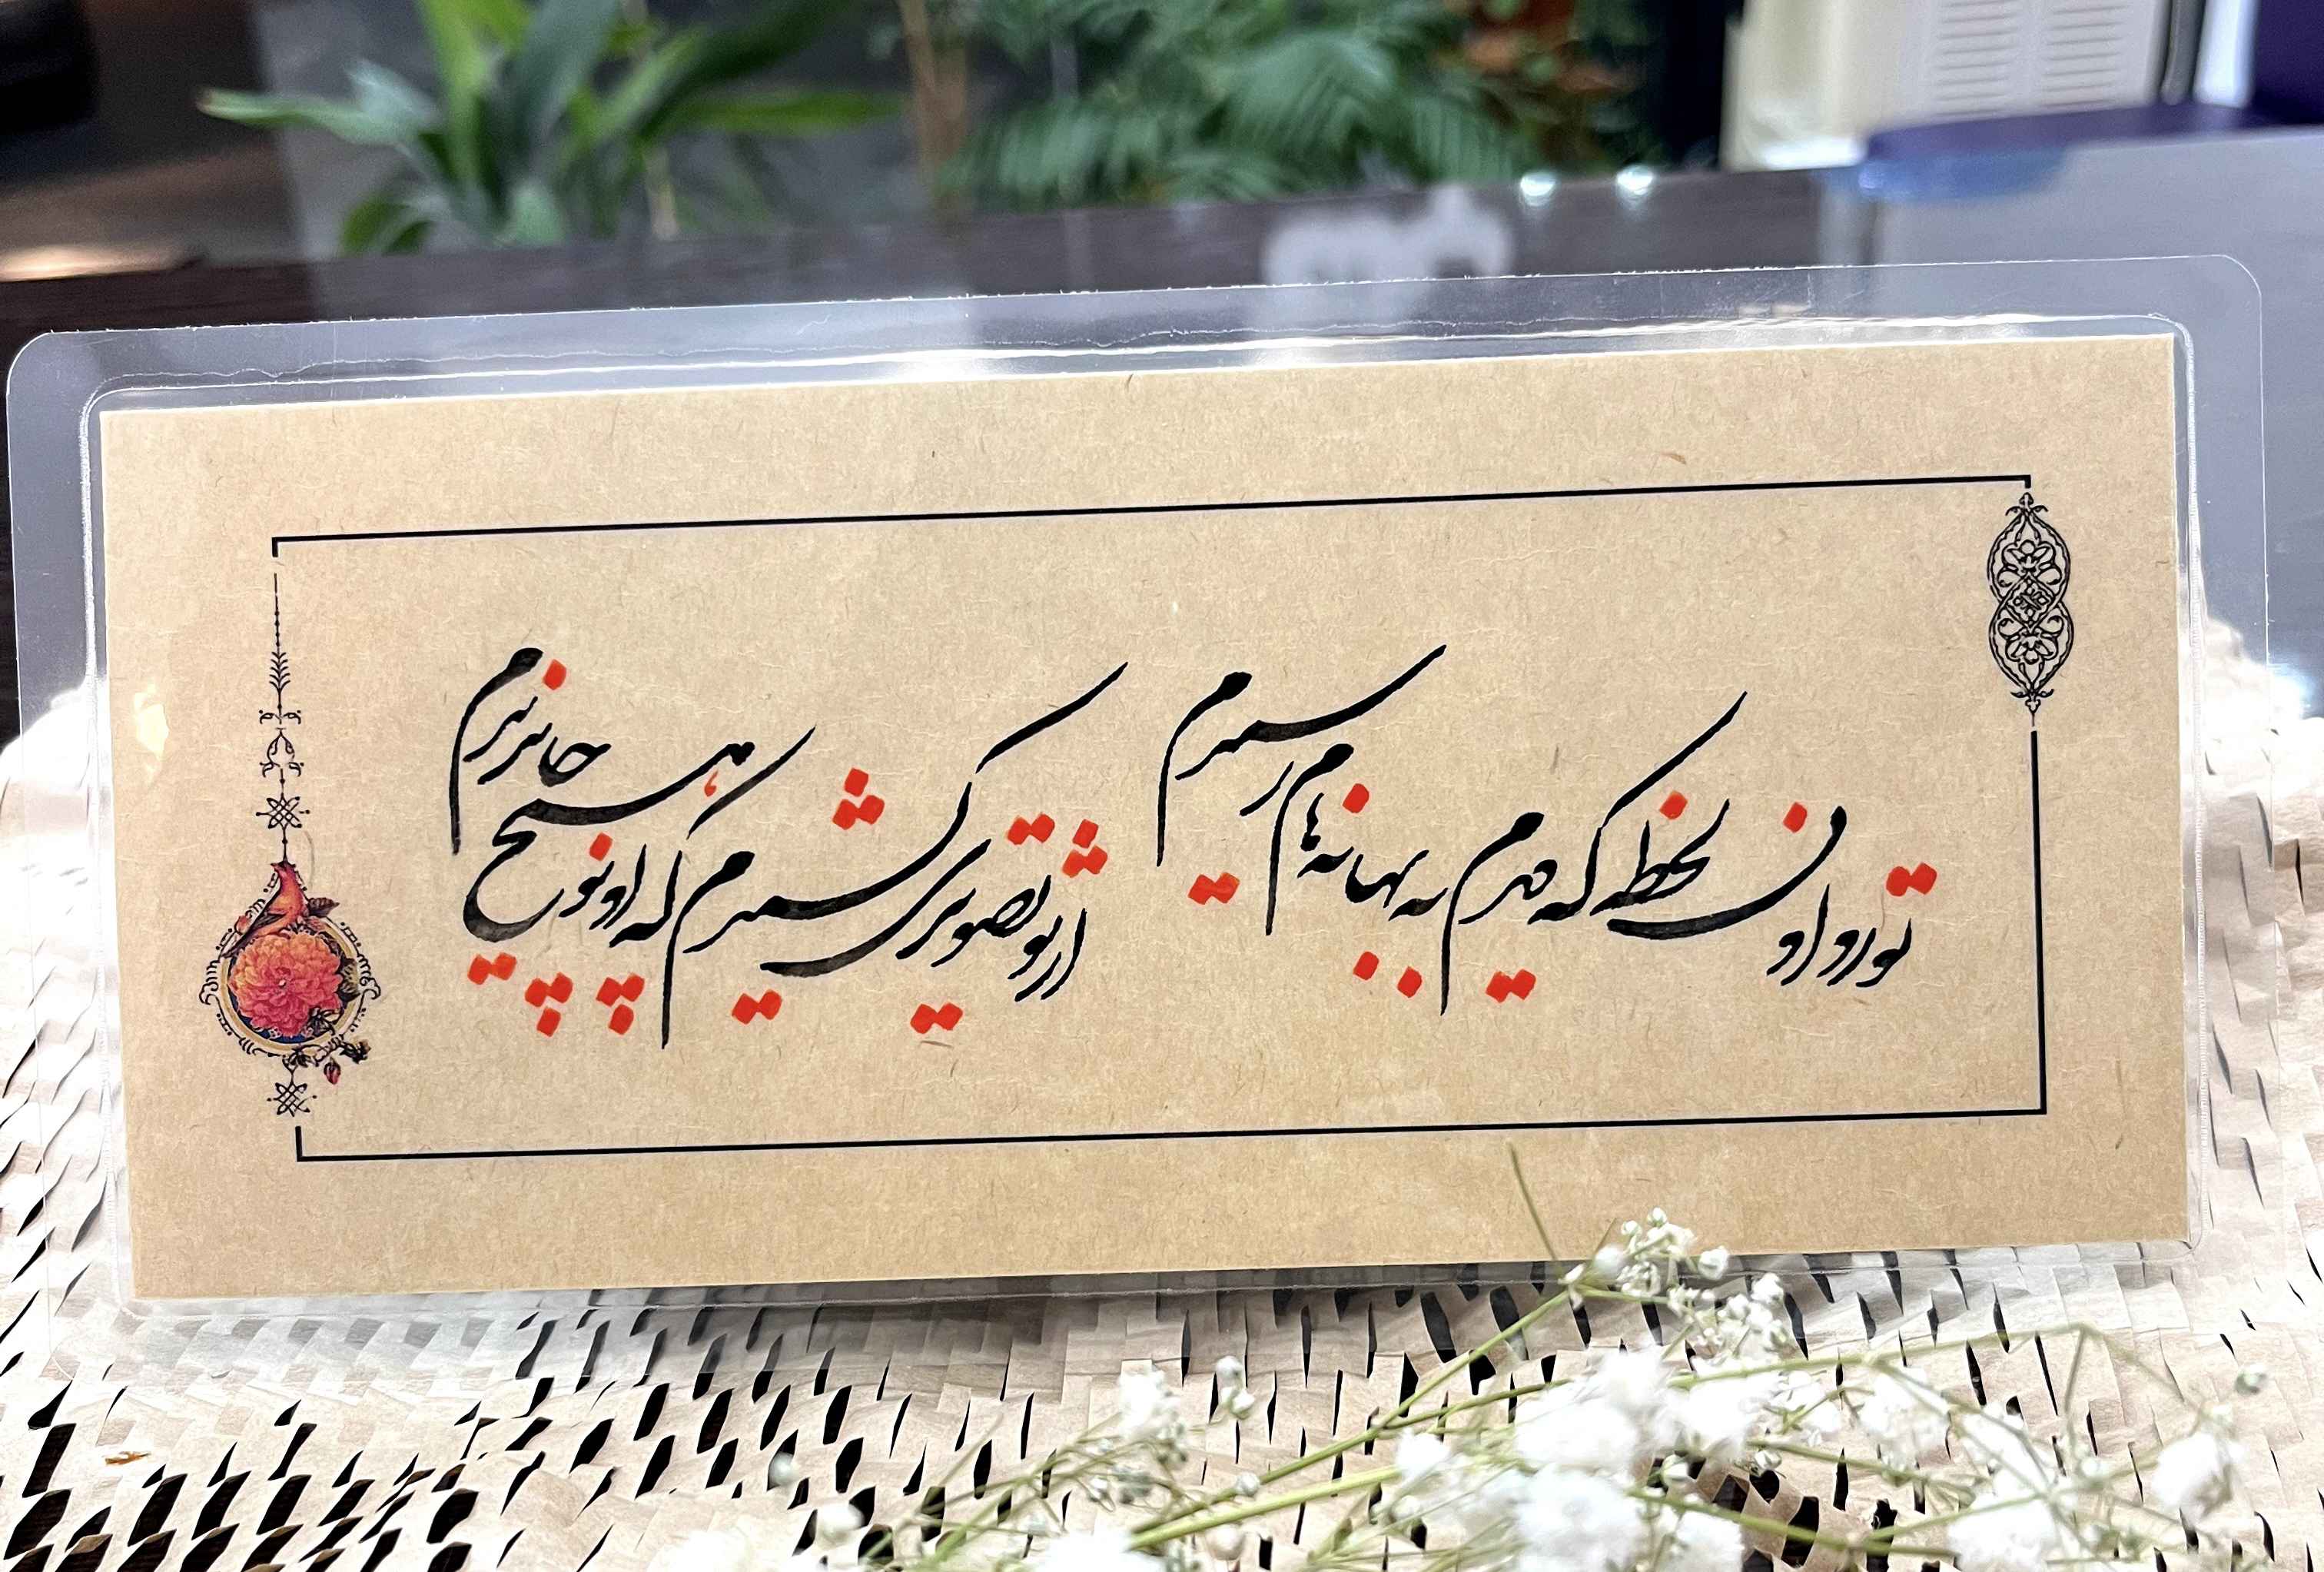 تو رو اون لحظه که دیدم به بهانه هام رسیدم
از تو تصویری کشیدم که اونو هیچ جا ندیدم